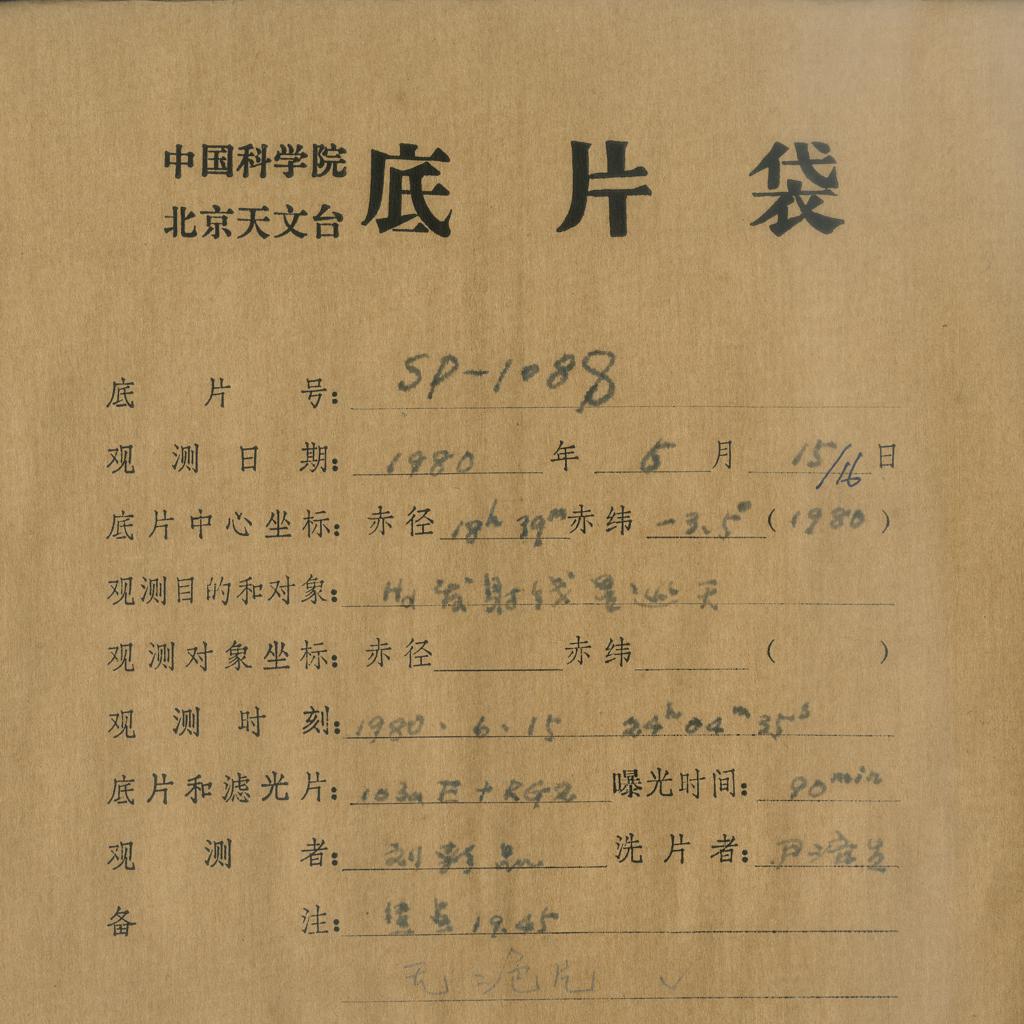 中国科学院
北京天文台
底片袋
底片号: SP-1088
观测日期: 1980 年 6 月 15/16 日
底片中心坐标: 赤径 18h 39m 赤纬 -3.5° (1980)
观测目的和对象: Hα 发射线星巡天
观测对象坐标: 赤径 赤纬 ( )
观测时刻: 1980.6.15 24h 04m 35s
底片和滤光片: 103aE+RG2 曝光时间: 90min
观测者: 刘 洗片者: 尹济生
备注: 焦点 19.45
无 色片 ✓